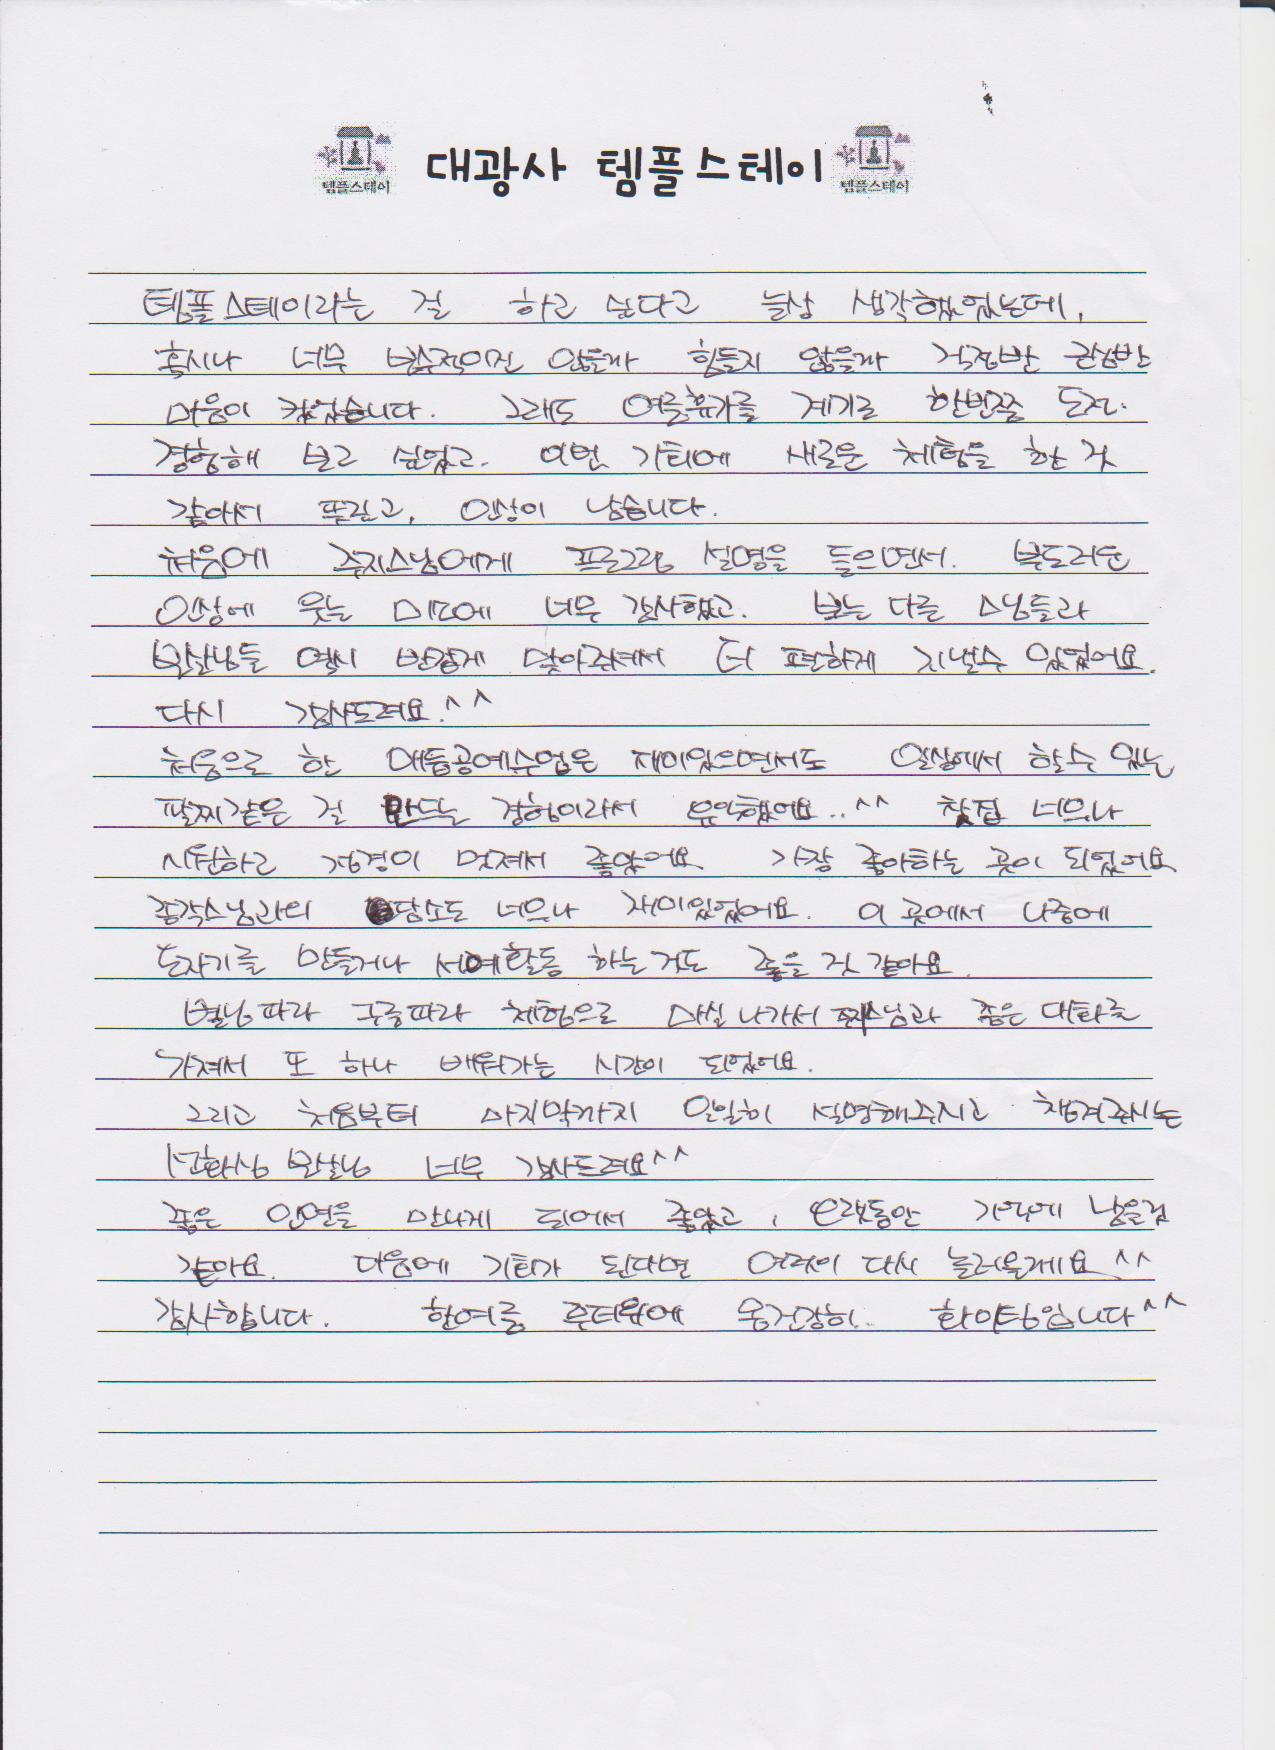 템플스테이 대광사 템플스테이 템플스테이
템플스테이라는 걸 하고 싶다고 늘상 생각했었는데,
혹시나 너무 범수적이진 않을까 힘들지 않을까 걱정반 근심반
마음이 컸었습니다. 그래도 여름휴가를 계기로 한번쯤 도전.
경험해 보고 싶었고. 이번 기회에 새로운 체험을 한 것
같아서 뜻깊고, 인상이 남습니다.
처음에 주지스님에게 프로그램 설명을 들으면서. 부드러운
인상에 웃는 미소에 너무 감사했고. 보는 다른 스님들과
보살님들 역시 반갑게 맞아주셔서 더 편하게 지낼수 있었어요.
다시 감사드려요.^^
처음으로 한 매듭공예수업은 재미있으면서도 일상에서 할수 있는
팔찌같은 걸 만드는 경험이라서 유익했어요..^^ 찻집 너무나
시원하고 정경이 멋져서 좋았어요 가장 좋아하는 곳이 되었어요
종각스님과의 담소도 너무나 재미있었어요. 이 곳에서 나중에
도자기를 만들거나 서예활동 하는것도 좋을 것 같아요.
별님따라 구름따라 체험으로 마실 나가서 스님과 좋은 대화를
가져서 또 하나 배워가는 시간이 되었어요.
그리고 처음부터 마지막까지 일일히 설명해주시고 챙겨주시는
보살님 너무 감사드려요^^
좋은 인연을 만나게 되어서 좋았고, 오랫동안 기억에 남을껏
같아요. 다음에 기회가 된다면 여럿이 다시 놀러올게요^^
감사합니다. 한여름 무더위에 몸건강히.. 화이팅입니다^^